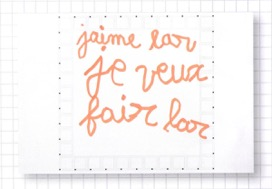 jaime lar
je veux
fair lar